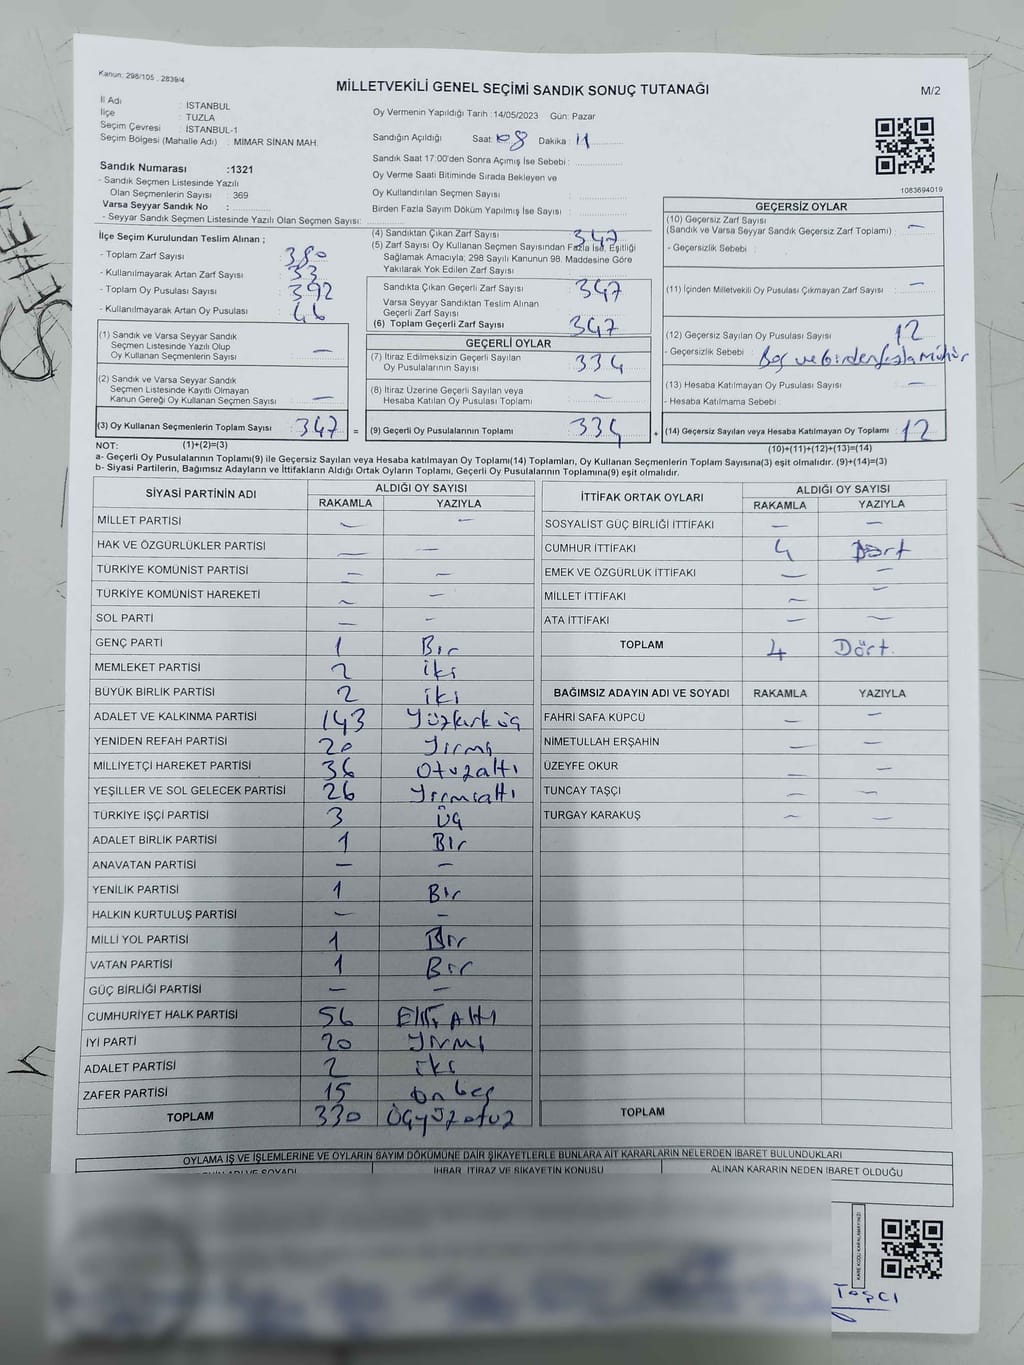 Kanun: 298/105 , 2839/4
MİLLETVEKİLİ GENEL SEÇİMİ SANDIK SONUÇ TUTANAĞI
M/2
İl Adı : İSTANBUL
İlçe : TUZLA
Seçim Çevresi : İSTANBUL-1
Seçim Bölgesi (Mahalle Adı) : MİMAR SİNAN MAH.
Oy Vermenin Yapıldığı Tarih :14/05/2023 Gün: Pazar
Sandığın Açıldığı Saat: 08 Dakika : 11
Sandık Saat 17:00'den Sonra Açımış İse Sebebi :
Oy Verme Saati Bitiminde Sırada Bekleyen ve
Oy Kullandırılan Seçmen Sayısı
Birden Fazla Sayım Döküm Yapılmış İse Sayısı :
1083694019
Sandık Numarası :1321
- Sandık Seçmen Listesinde Yazılı
Olan Seçmenlerin Sayısı : 369
Varsa Seyyar Sandık No :
- Seyyar Sandık Seçmen Listesinde Yazılı Olan Seçmen Sayısı:
İlçe Seçim Kurulundan Teslim Alınan ;
- Toplam Zarf Sayısı : 380
- Kullanılmayarak Artan Zarf Sayısı : 33
- Toplam Oy Pusulası Sayısı : 392
- Kullanılmayarak Artan Oy Pusulası : 46
(1) Sandık ve Varsa Seyyar Sandık
Seçmen Listesinde Yazılı Olup
Oy Kullanan Seçmenlerin Sayısı : —
(2) Sandık ve Varsa Seyyar Sandık
Seçmen Listesinde Kayıtlı Olmayan
Kanun Gereği Oy Kullanan Seçmen Sayısı : —
(3) Oy Kullanan Seçmenlerin Toplam Sayısı : 347 =
(4) Sandıktan Çıkan Zarf Sayısı : 347
(5) Zarf Sayısı Oy Kullanan Seçmen Sayısından Fazla İse, Eşitliği
Sağlamak Amacıyla; 298 Sayılı Kanunun 98. Maddesine Göre
Yakılarak Yok Edilen Zarf Sayısı :
Sandıkta Çıkan Geçerli Zarf Sayısı : 347
Varsa Seyyar Sandıktan Teslim Alınan
Geçerli Zarf Sayısı :
(6) Toplam Geçerli Zarf Sayısı : 347
GEÇERLİ OYLAR
(7) İtiraz Edilmeksizin Geçerli Sayılan
Oy Pusulalarının Sayısı : 334
(8) İtiraz Üzerine Geçerli Sayılan veya
Hesaba Katılan Oy Pusulası Toplamı : —
(9) Geçerli Oy Pusulalarının Toplamı : 334 +
GEÇERSİZ OYLAR
(10) Geçersiz Zarf Sayısı
(Sandık ve Varsa Seyyar Sandık Geçersiz Zarf Toplamı) : —
- Geçersizlik Sebebi :
(11) İçinden Milletvekili Oy Pusulası Çıkmayan Zarf Sayısı : —
(12) Geçersiz Sayılan Oy Pusulası Sayısı : 12
- Geçersizlik Sebebi : Boş ve birden fazla mühür
(13) Hesaba Katılmayan Oy Pusulası Sayısı : —
- Hesaba Katılmama Sebebi :
(14) Geçersiz Sayılan veya Hesaba Katılmayan Oy Toplamı : 12
NOT: (1)+(2)=(3) (10)+(11)+(12)+(13)=(14)
a- Geçerli Oy Pusulalarının Toplamı(9) ile Geçersiz Sayılan veya Hesaba katılmayan Oy Pusulası Toplamı(14) Toplamları, Oy Kullanan Seçmenlerin Toplam Sayısına(3) eşit olmalıdır. (9)+(14)=(3)
b- Siyasi Partilerin, Bağımsız Adayların ve İttifakların Aldığı Ortak Oyların Toplamı, Geçerli Oy Pusulalarının Toplamına(9) eşit olmalıdır.
SİYASİ PARTİNİN ADI ALDIĞI OY SAYISI
RAKAMLA YAZIYLA
MİLLET PARTİSİ — —
HAK VE ÖZGÜRLÜKLER PARTİSİ — —
TÜRKİYE KOMÜNİST PARTİSİ — —
TÜRKİYE KOMÜNİST HAREKETİ — —
SOL PARTİ — —
GENÇ PARTİ 1 Bir
MEMLEKET PARTİSİ 2 iki
BÜYÜK BİRLİK PARTİSİ 2 iki
ADALET VE KALKINMA PARTİSİ 143 Yüzkırküç
YENİDEN REFAH PARTİSİ 20 Yirmi
MİLLİYETÇİ HAREKET PARTİSİ 36 Otuzaltı
YEŞİLLER VE SOL GELECEK PARTİSİ 26 Yirmialtı
TÜRKİYE İŞÇİ PARTİSİ 3 Üç
ADALET BİRLİK PARTİSİ 1 Bir
ANAVATAN PARTİSİ — —
YENİLİK PARTİSİ 1 Bir
HALKIN KURTULUŞ PARTİSİ — —
MİLLİ YOL PARTİSİ 1 Bir
VATAN PARTİSİ 1 Bir
GÜÇ BİRLİĞİ PARTİSİ — —
CUMHURİYET HALK PARTİSİ 56 Elli Altı
İYİ PARTİ 20 Yirmi
ADALET PARTİSİ 2 iki
ZAFER PARTİSİ 15 On beş
TOPLAM 330 Üçyüzotuz
İTTİFAK ORTAK OYLARI ALDIĞI OY SAYISI
RAKAMLA YAZIYLA
SOSYALİST GÜÇ BİRLİĞİ İTTİFAKI — —
CUMHUR İTTİFAKI 4 Dört
EMEK VE ÖZGÜRLÜK İTTİFAKI — —
MİLLET İTTİFAKI — —
ATA İTTİFAKI — —
TOPLAM 4 Dört.
BAĞIMSIZ ADAYIN ADI VE SOYADI RAKAMLA YAZIYLA
FAHRİ SAFA KÜPCÜ — —
NİMETULLAH ERŞAHİN — —
ÜZEYFE OKUR — —
TUNCAY TAŞÇI — —
TURGAY KARAKUŞ — —
TOPLAM
OYLAMA İŞ VE İŞLEMLERİNE VE OYLARIN SAYIM DÖKÜMÜNE DAİR ŞİKAYETLERLE BUNLARA AİT KARARLARIN NELERDEN İBARET BULUNDUKLARI
İHBAR, İTİRAZ VE ŞİKAYETİN KONUSU ALINAN KARARIN NEDEN İBARET OLDUĞU
KARE KODU KARALAMAYINIZ!
Taşcı